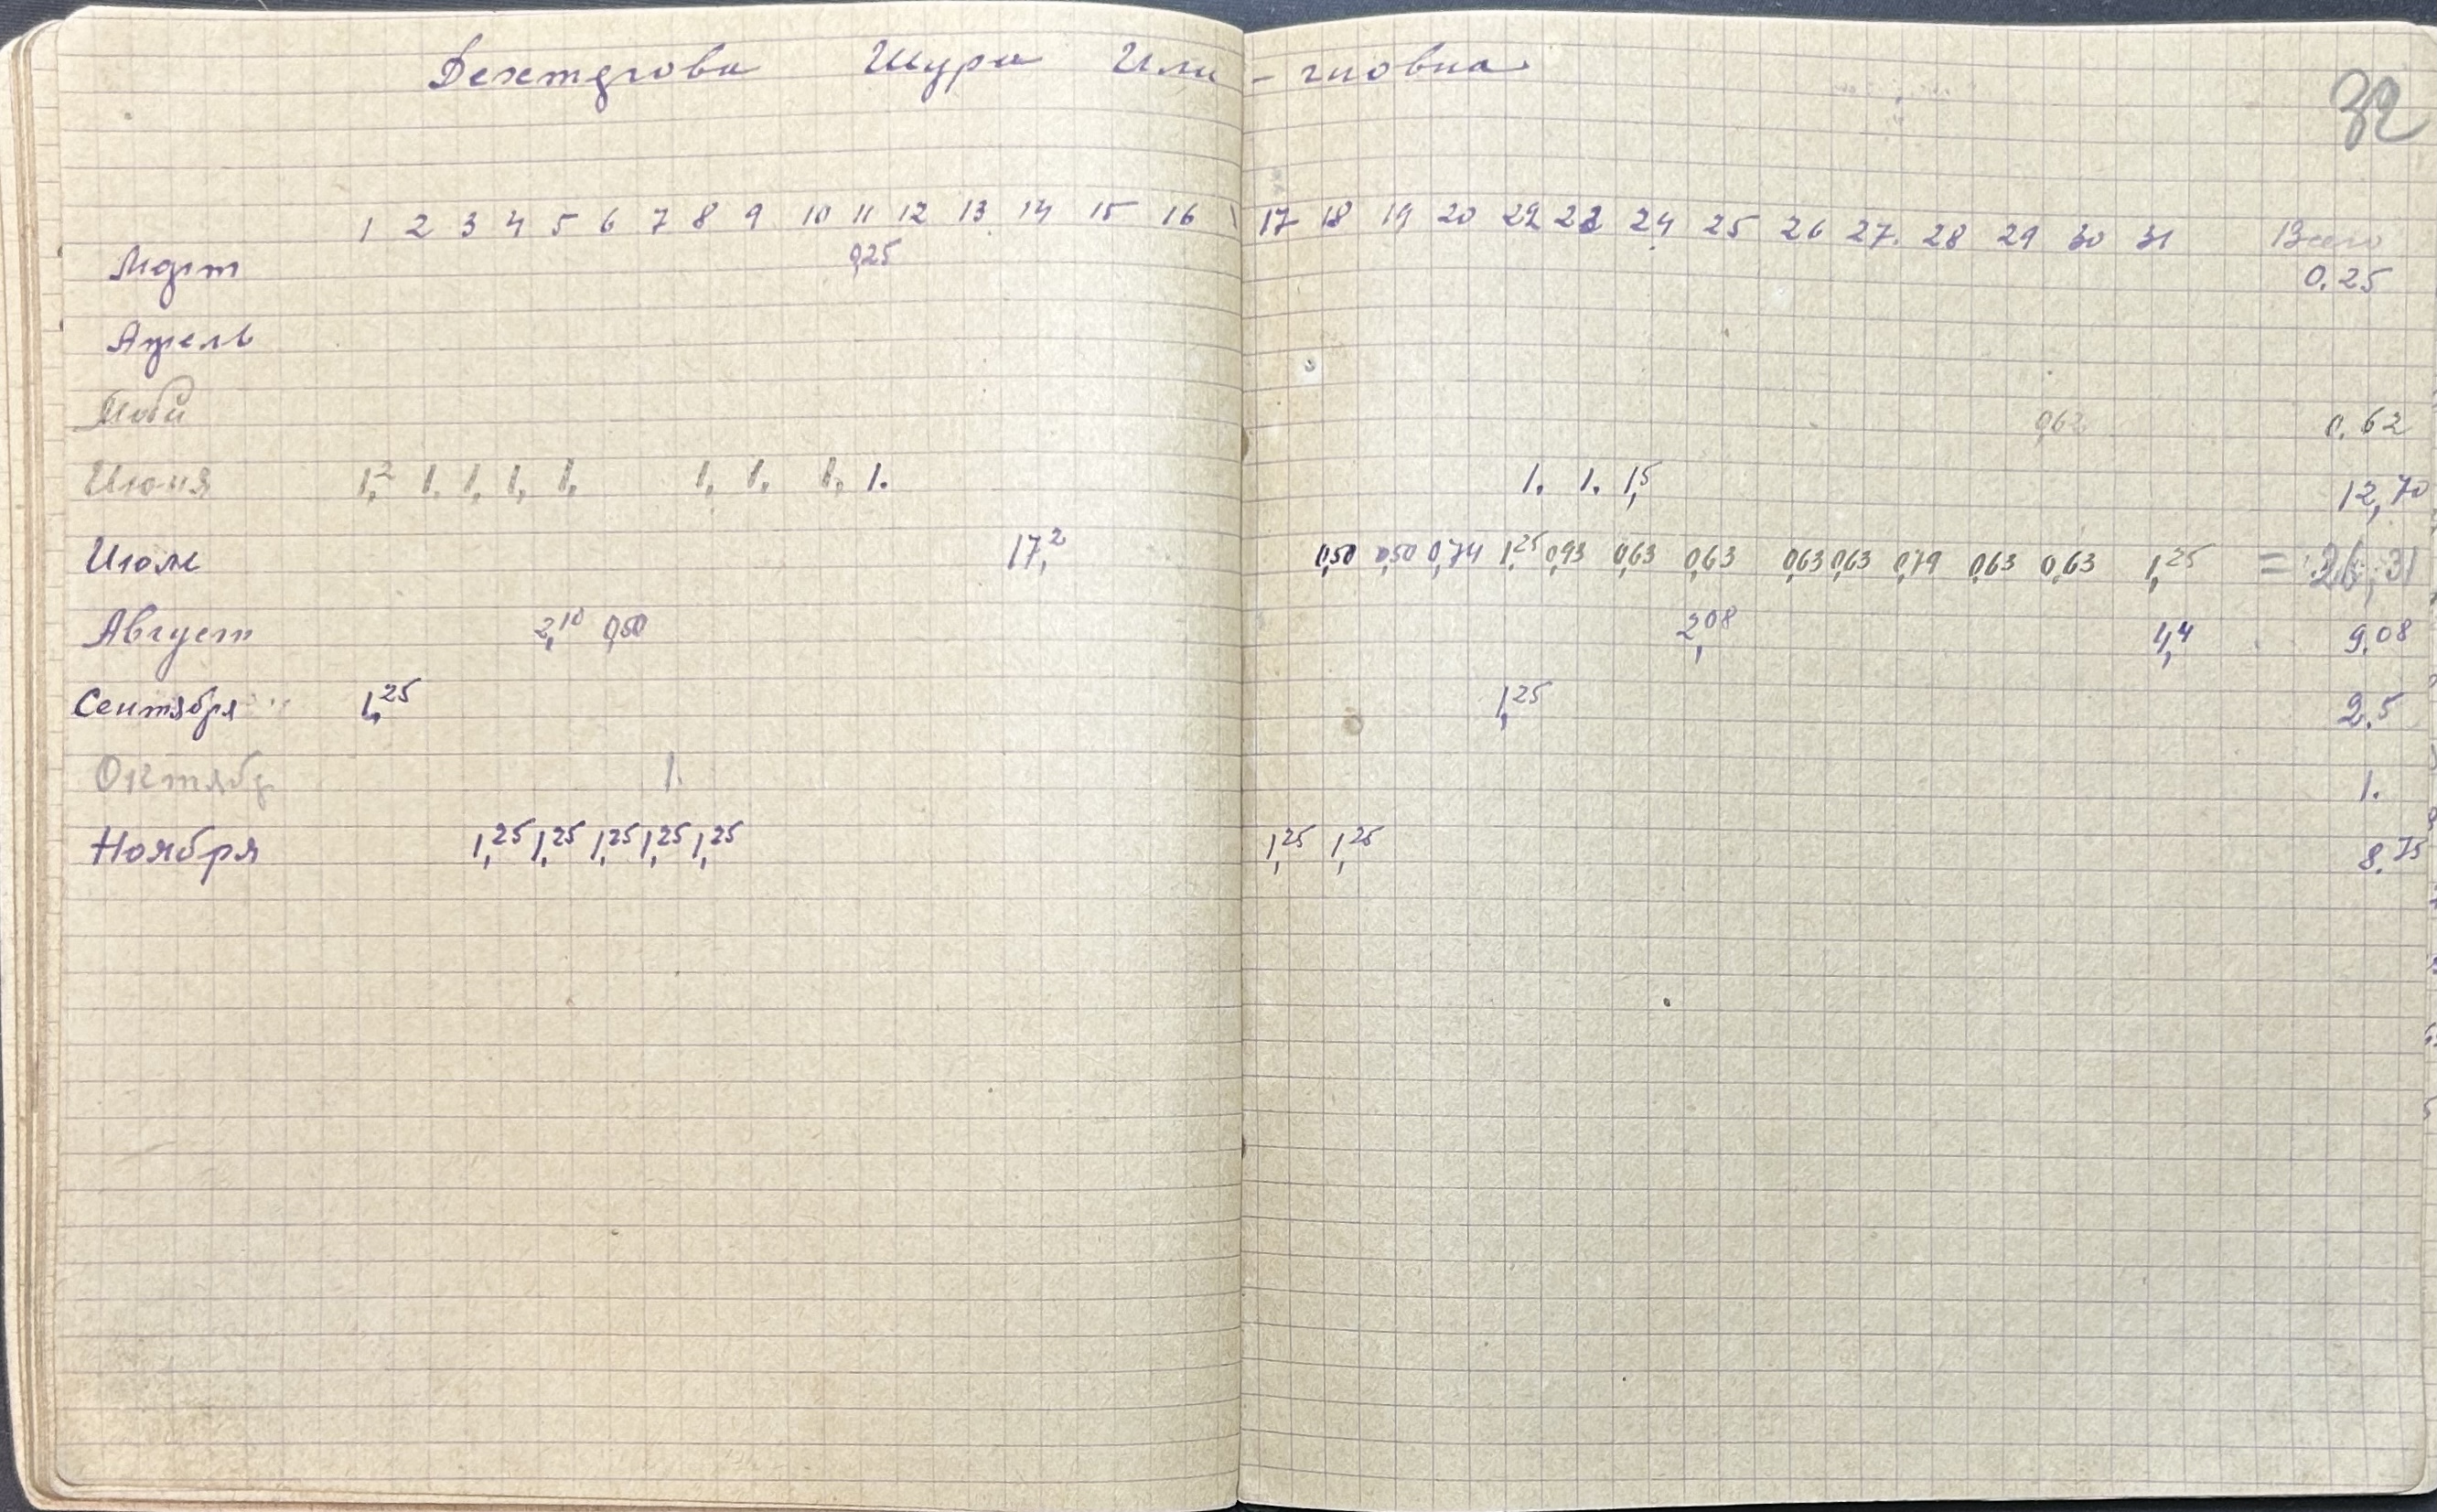 Дехтдрова Шура Или - гиовна
32
1 2 3 4 5 6 7 8 9 10 11 12 13 14 15 16 17 18 19 20 22 23 24 25 26 27. 28 29 30 31 Всего
Март 0,25 0.25
Апрель
0,62 0.62
Июня 1,2 1. 1, 1, 1, 1, 1, 1, 1. 1. 1. 1,5 12,70
Июль 17,2 0,50 0,50 0,74 1,25 0,93 0,63 0,63 0,63 0,63 0,79 0,63 0,63 1,25 = 26,31
Август 2,10 0,50 2,08 4,4 9.08
Сентября 1,25 1,25 2.5
Октябр 1. 1.
Ноября 1,25 1,25 1,25 1,25 1,25 1,25 1,25 8.75